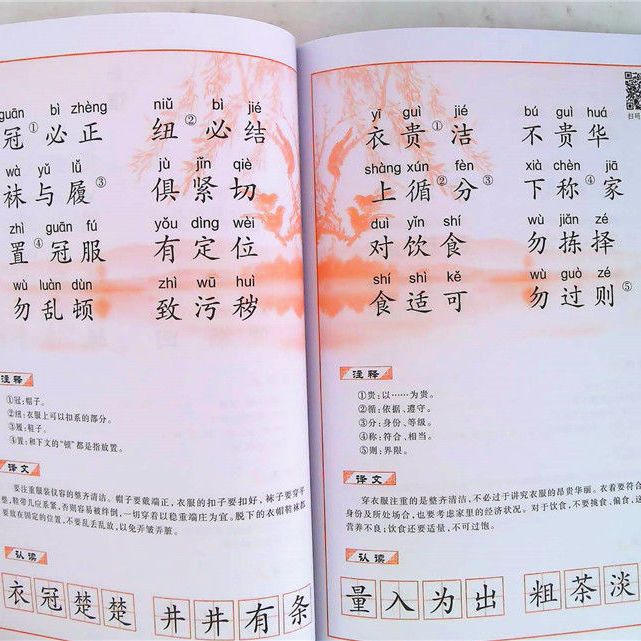 guān bì zhèng niǔ bì jié
冠①必正 纽②必结
wà yǔ lǚ jù jǐn qiè
袜与履③ 俱紧切
zhì guān fú yǒu dìng wèi
置④冠服 有定位
wù luàn dùn zhì wū huì
勿乱顿 致污秽
注释
①冠:帽子。
②纽:衣服上可以扣系的部分。
③履:鞋子。
④置:和下文的“顿”都是指放置。
译文
要注重服装仪容的整齐清洁。帽子要戴端正,衣服的扣子要扣好,袜子要穿平
整,鞋带儿应系紧,否则容易被绊倒,一切穿着以稳重端庄为宜。脱下的衣帽鞋袜都
要放在固定的位置,不要乱丢乱放,以免弄皱弄脏。
认读
衣冠楚楚 井井有条
扫码
yī guì jié bú guì huá
衣贵①洁 不贵华
shàng xún fèn xià chèn jiā
上循②分③ 下称④家
duì yǐn shí wù jiǎn zé
对饮食 勿拣择
shí shì kě wù guò zé
食适可 勿过则⑤
注释
①贵:以……为贵。
②循:依据、遵守。
③分:身份、等级。
④称:符合、相当。
⑤则:界限。
译文
穿衣服注重的是整齐清洁,不必过于讲究衣服的昂贵华丽。衣着要符合
身份及所处场合,也要考虑家里的经济状况。对于饮食,不要挑食、偏食,
营养不良;饮食还要适量,不可过饱。
认读
量入为出 粗茶淡